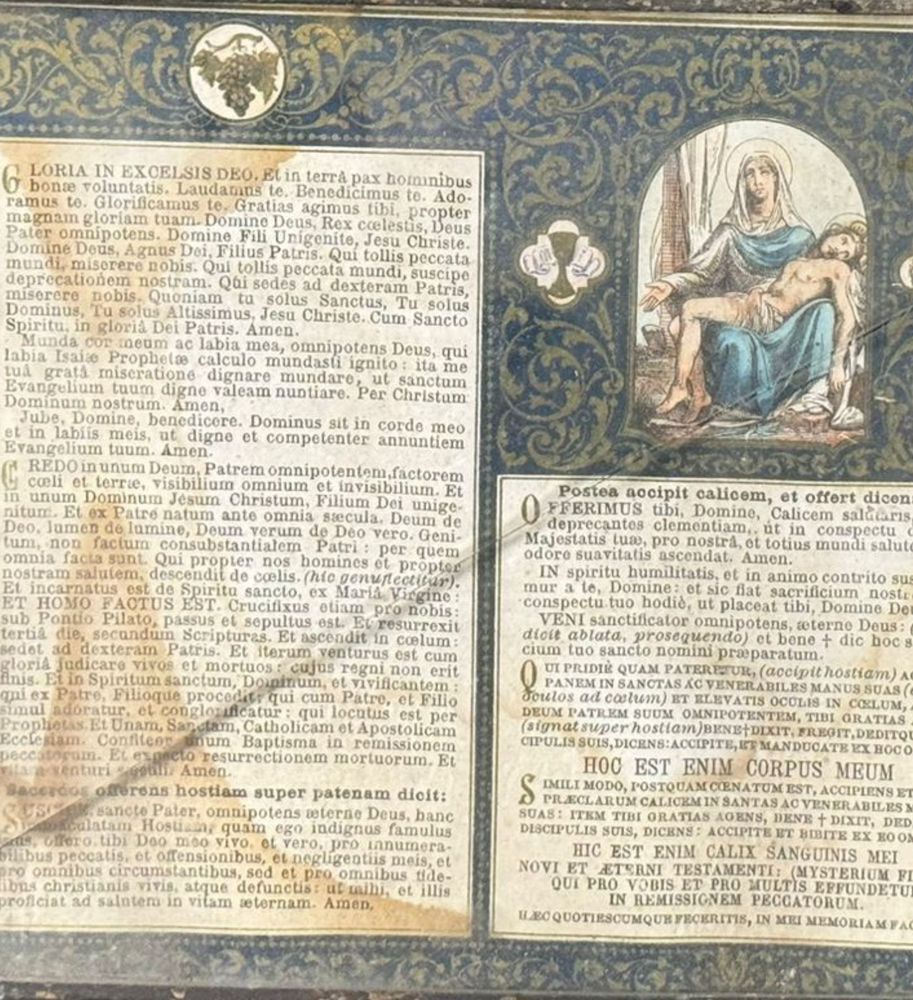 GLORIA IN EXCELSIS DEO. Et in terrâ pax hominibus
bonæ voluntatis. Laudamus te. Benedicimus te. Ado-
ramus te. Glorificamus te. Gratias agimus tibi, propter
magnam gloriam tuam. Domine Deus, Rex cœlestis, Deus
Pater omnipotens. Domine Fili Unigenite, Jesu Christe.
Domine Deus, Agnus Dei, Filius Patris. Qui tollis peccata
mundi, miserere nobis. Qui tollis peccata mundi, suscipe
deprecationem nostram. Qui sedes ad dexteram Patris,
miserere nobis. Quoniam tu solus Sanctus, Tu solus
Dominus, Tu solus Altissimus, Jesu Christe. Cum Sancto
Spiritu, in gloriâ Dei Patris. Amen.
Munda cor meum ac labia mea, omnipotens Deus, qui
labia Isaiæ Prophetæ calculo mundasti ignito : ita me
tuâ gratâ miseratione dignare mundare, ut sanctum
Evangelium tuum digne valeam nuntiare. Per Christum
Dominum nostrum. Amen,
Jube, Domine, benedicere. Dominus sit in corde meo
et in labiis meis, ut digne et competenter annuntiem
Evangelium tuum. Amen.
CREDO in unum Deum, Patrem omnipotentem, factorem
cœli et terræ, visibilium omnium et invisibilium. Et
in unum Dominum Jesum Christum, Filium Dei unige-
nitum. Et ex Patre natum ante omnia sæcula. Deum de
Deo, lumen de lumine, Deum verum de Deo vero. Geni-
tum, non factum consubstantialem Patri : per quem
omnia facta sunt. Qui propter nos homines et propter
nostram salutem, descendit de cœlis. (hic genuflectitur).
Et incarnatus est de Spiritu sancto, ex Mariâ Virgine :
ET HOMO FACTUS EST. Crucifixus etiam pro nobis :
sub Pontio Pilato, passus et sepultus est. Et resurrexit
tertiâ die, secundum Scripturas. Et ascendit in cœlum :
sedet ad dexteram Patris. Et iterum venturus est cum
gloriâ judicare vivos et mortuos : cujus regni non erit
finis. Et in Spiritum sanctum, Dominum, et vivificantem :
qui ex Patre, Filioque procedit : qui cum Patre, et Filio
simul adoratur, et conglorificatur : qui locutus est per
Prophetas. Et Unam, Sanctam, Catholicam et Apostolicam
Ecclesiam. Confiteor unum Baptisma in remissionem
peccatorum. Et expecto resurrectionem mortuorum. Et
vitam venturi sæculi. Amen.
Sacerdos offerens hostiam super patenam dicit:
SUSCIPE, sancte Pater, omnipotens æterne Deus, hanc
immaculatam Hostiam, quam ego indignus famulus
tuus, offero tibi Deo meo vivo et vero, pro innumera-
bilibus peccatis, et offensionibus, et negligentiis meis, et
pro omnibus circumstantibus, sed et pro omnibus fide-
libus christianis vivis, atque defunctis : ut mihi, et illis
proficiat ad salutem in vitam æternam. Amen.
Postea accipit calicem, et offert dicen
OFFERIMUS tibi, Domine, Calicem salutaris
deprecantes clementiam, ut in conspectu d
Majestatis tuæ, pro nostrâ, et totius mundi salute
odore suavitatis ascendat. Amen.
IN spiritu humilitatis, et in animo contrito sus
mur a te, Domine : et sic fiat sacrificium nostr
conspectu tuo hodiè, ut placeat tibi, Domine De
VENI sanctificator omnipotens, æterne Deus :
dicit ablata, prosequendo) et bene † dic hoc s
cium tuo sancto nomini præparatum.
QUI PRIDIÈ QUAM PATERETUR, (accipit hostiam) AC
PANEM IN SANCTAS AC VENERABILES MANUS SUAS (
oculos ad cœlum) ET ELEVATIS OCULIS IN CŒLUM, A
DEUM PATREM SUUM OMNIPOTENTEM, TIBI GRATIAS
(signat super hostiam) BENE†DIXIT, FREGIT, DEDITQU
CIPULIS SUIS, DICENS: ACCIPITE, ET MANDUCATE EX HOC O
HOC EST ENIM CORPUS MEUM
SIMILI MODO, POSTQUAM CŒNATUM EST, ACCIPIENS ET
PRÆCLARUM CALICEM IN SANTAS AC VENERABILES M
SUAS : ITEM TIBI GRATIAS AGENS, BENE † DIXIT, DED
DISCIPULIS SUIS, DICENS : ACCIPITE ET BIBITE EX EO OM
HIC EST ENIM CALIX SANGUINIS MEI
NOVI ET ÆTERNI TESTAMENTI: (MYSTERIUM FI
QUI PRO VOBIS ET PRO MULTIS EFFUNDETU
IN REMISSIONEM PECCATORUM.
HÆC QUOTIESCUMQUE FECERITIS, IN MEI MEMORIAM FAC